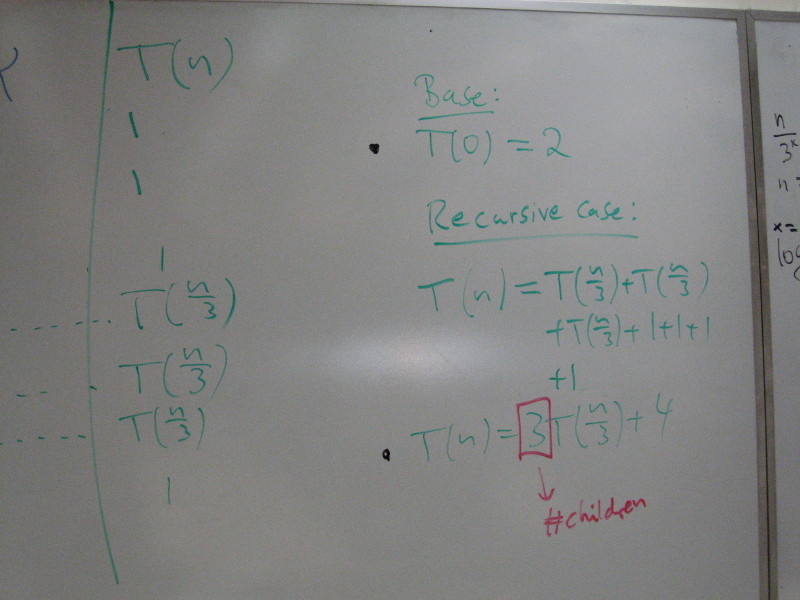 T(n)
1
1
1
T(n/3)
T(n/3)
T(n/3)
1
Base:
T(0) = 2
Recursive case:
T(n) = T(n/3) + T(n/3)
+ T(n/3) + 1 + 1 + 1
+1
T(n) = 3T(n/3) + 4
#children
n/3^x
n
x=
log